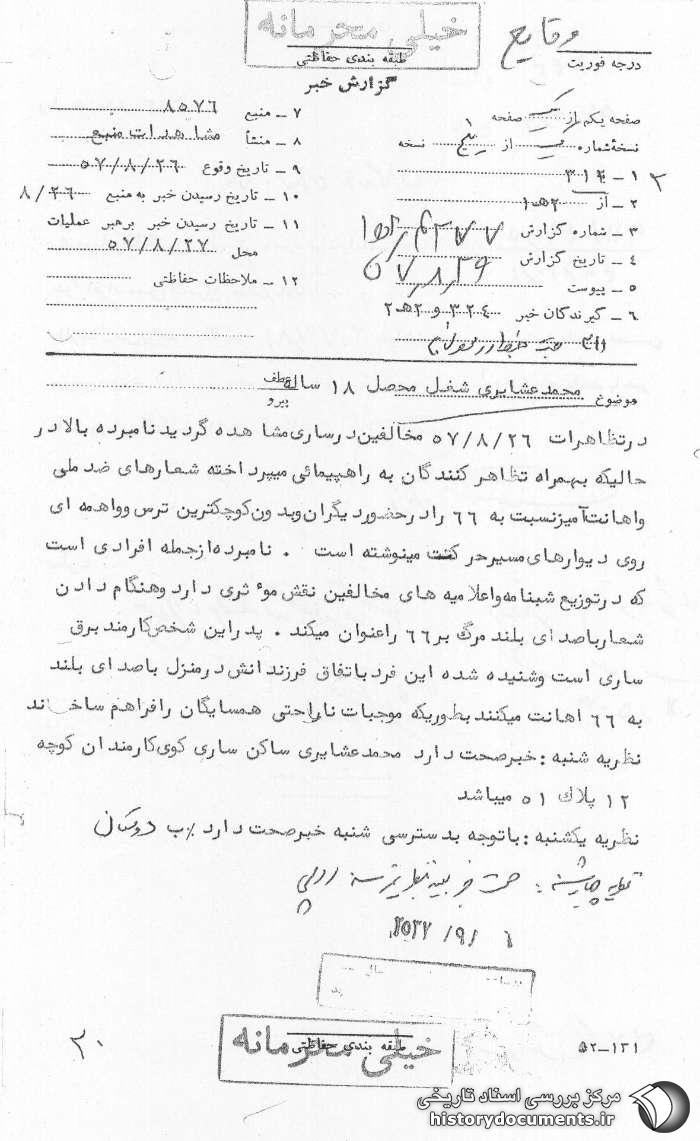 خیلی محرمانه
طبقه بندی حفاظتی
گزارش خبر
وقایع
درجه فوریت
صفحه یکم از یک صفحه
نسخهٔ شماره از پنج نسخه
۱ ـ ۳۱۲
۲ ـ از ۲ هـ ۱
۳ ـ شماره گزارش
۴ ـ تاریخ گزارش ۵۷٫۸٫۲۹
۵ ـ پیوست
۶ ـ گیرندگان خبر ۳۲۴ و ۲ هـ ۲
۷ ـ منبع ۸۵۷۶
۸ ـ منشأ مشاهدات منبع
۹ ـ تاریخ وقوع ۵۷/۸/۲۶
۱۰ ـ تاریخ رسیدن خبر به منبع ۸/۲۶
۱۱ ـ تاریخ رسیدن خبر برهبر عملیات
محل ۵۷/۸/۲۷
۱۲ ـ ملاحظات حفاظتی
موضوع محمدعشایری شغل محصل ۱۸ ساله
عطف
پیرو
درتظاهرات ۵۷/۸/۲۶ مخالفین درساری مشاهده گردید نامبرده بالا در
حالیکه بهمراه تظاهرکنندگان به راهپیمائی میپرداخته شعارهای ضد ملی
واهانت آمیزنسبت به ۶۶ رادرحضوردیگران وبدون کوچکترین ترس وواهمه ای
روی دیوارهای مسیرحرکت مینوشته است . نامبرده ازجمله افرادی است
که درتوزیع شبنامه واعلامیه های مخالفین نقش موٴثری دارد وهنگام دادن
شعارباصدای بلند مرگ بر۶۶ راعنوان میکند . پدراین شخص کارمند برق
ساری است وشنیده شده این فرد باتفاق فرزندانش درمنزل باصدای بلند
به ۶۶ اهانت میکنند بطوریکه موجبات ناراحتی همسایگان رافراهم ساخته اند
نظریه شنبه : خبرصحت دارد محمدعشایری ساکن ساری کوی کارمندان کوچه
۱۲ پلاك ۵۱ میباشد
نظریه یکشنبه : باتوجه بدسترسی شنبه خبرصحت دارد /ب
نظریه چهارشنبه :
۲۵۳۷/۹/۱
خیلی محرمانه
طبقه بندی حفاظتی
۲۰
۵۲-۱۳۱
مرکز بررسی اسناد تاریخی
historydocuments.ir